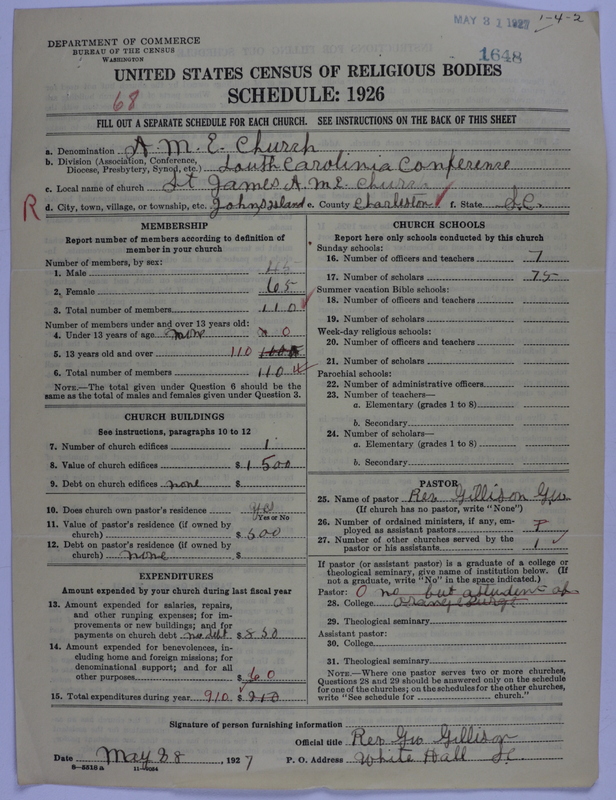 MAY 31 1927 1-4-2
DEPARTMENT OF COMMERCE
BUREAU OF THE CENSUS
WASHINGTON
1648
UNITED STATES CENSUS OF RELIGIOUS BODIES
68
SCHEDULE: 1926
FILL OUT A SEPARATE SCHEDULE FOR EACH CHURCH. SEE INSTRUCTIONS ON THE BACK OF THIS SHEET
a. Denomination A. M. E. Church
b. Division (Association, Conference, Diocese, Presbytery, Synod, etc.) South Carolinia Conferense
c. Local name of church St James A.M.E. Church
R d. City, town, village, or township, etc. Johns Island e. County Charleston f. State S.C.
MEMBERSHIP
Report number of members according to definition of
member in your church
Number of members, by sex:
1. Male 45
2. Female 65
3. Total number of members 110
Number of members under and over 13 years old:
4. Under 13 years of age none 0
5. 13 years old and over 110
6. Total number of members 110
NOTE.—The total given under Question 6 should be the
same as the total of males and females given under Question 3.
CHURCH BUILDINGS
See instructions, paragraphs 10 to 12
7. Number of church edifices 1
8. Value of church edifices $ 1 500
9. Debt on church edifices none $
10. Does church own pastor's residence yes
(Yes or No
11. Value of pastor's residence (if owned by
church) $ 500
12. Debt on pastor's residence (if owned by
church) none $
EXPENDITURES
Amount expended by your church during last fiscal year
13. Amount expended for salaries, repairs,
and other running expenses; for im-
provements or new buildings; and for
payments on church debt no debt $ 850
14. Amount expended for benevolences, in-
cluding home and foreign missions; for
denominational support; and for all
other purposes $ 60
15. Total expenditures during year 910 $ 910
CHURCH SCHOOLS
Report here only schools conducted by this church
Sunday schools:
16. Number of officers and teachers 7
17. Number of scholars 75
Summer vacation Bible schools:
18. Number of officers and teachers
19. Number of scholars
Week-day religious schools:
20. Number of officers and teachers
21. Number of scholars
Parochial schools:
22. Number of administrative officers
23. Number of teachers—
a. Elementary (grades 1 to 8)
b. Secondary
24. Number of scholars—
a. Elementary (grades 1 to 8)
b. Secondary
PASTOR
25. Name of pastor Rev Gillison Geo
(If church has no pastor, write "None")
26. Number of ordained ministers, if any, em-
ployed as assistant pastors
27. Number of other churches served by the
pastor or his assistants 1
If pastor (or assistant pastor) is a graduate of a college or
theological seminary, give name of institution below. (If
not a graduate, write "No" in the space indicated.)
Pastor: 0 no but a student of
28. College Orangeburg
29. Theological seminary
Assistant pastor:
30. College
31. Theological seminary
NOTE.—Where one pastor serves two or more churches,
Questions 28 and 29 should be answered only on the schedule
for one of the churches; on the schedules for the other churches,
write "See schedule for church."
Signature of person furnishing information
Official title Rev Geo Gillison
Date May 28, 1927 P. O. Address White Hall SC
8—5518a 11—9034